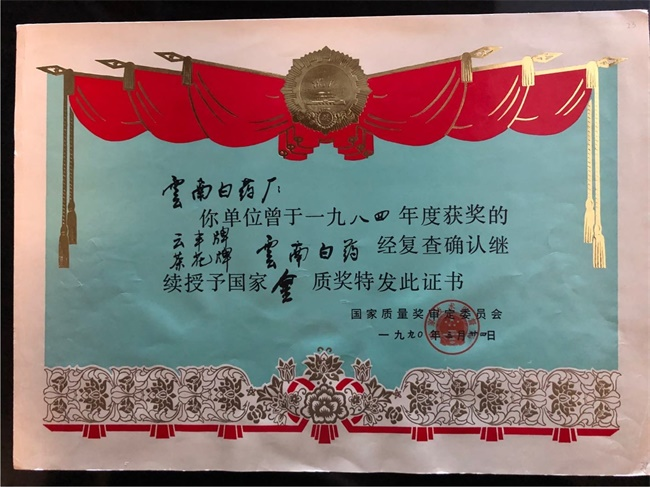 雲南白药厂:
你单位曾于一九八四年度获奖的
云丰牌
茶花牌 雲南白药 经复查确认继
续授予国家金质奖特发此证书
国家质量奖审定委员会
一九九〇年 月 日